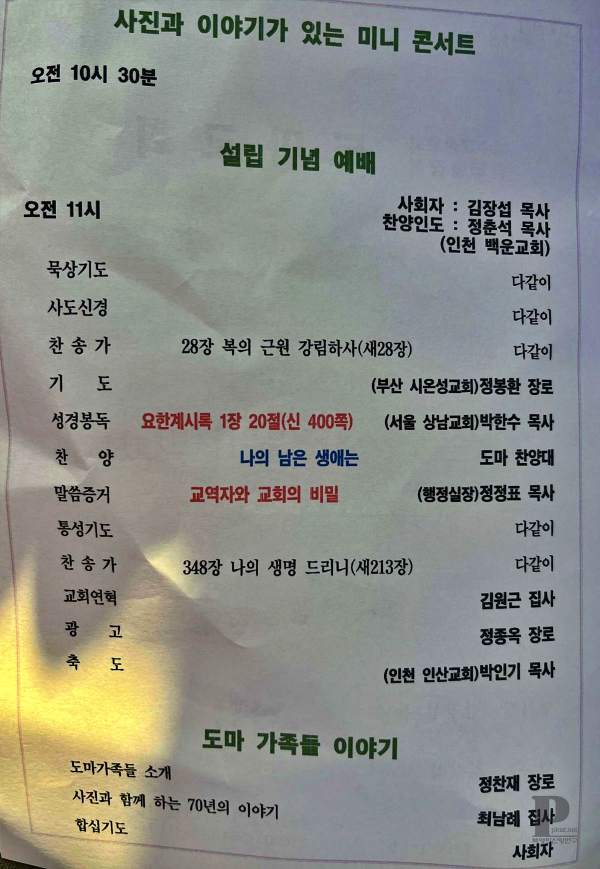 사진과 이야기가 있는 미니 콘서트
오전 10시 30분
설립 기념 예배
오전 11시
사회자 : 김장섭 목사
찬양인도 : 정춘석 목사
(인천 백운교회)
묵상기도 다같이
사도신경 다같이
찬 송 가 28장 복의 근원 강림하사(새28장) 다같이
기 도 (부산 시온성교회)정봉환 장로
성경봉독 요한계시록 1장 20절(신 400쪽) (서울 상남교회)박한수 목사
찬 양 나의 남은 생애는 도마 찬양대
말씀증거 교역자와 교회의 비밀 (행정실장)정정표 목사
통성기도 다같이
찬 송 가 348장 나의 생명 드리니(새213장) 다같이
교회연혁 김원근 집사
광 고 정종옥 장로
축 도 (인천 인산교회)박인기 목사
도마 가족들 이야기
도마가족들 소개 정찬재 장로
사진과 함께 하는 70년의 이야기 최남례 집사
합심기도 사회자
P